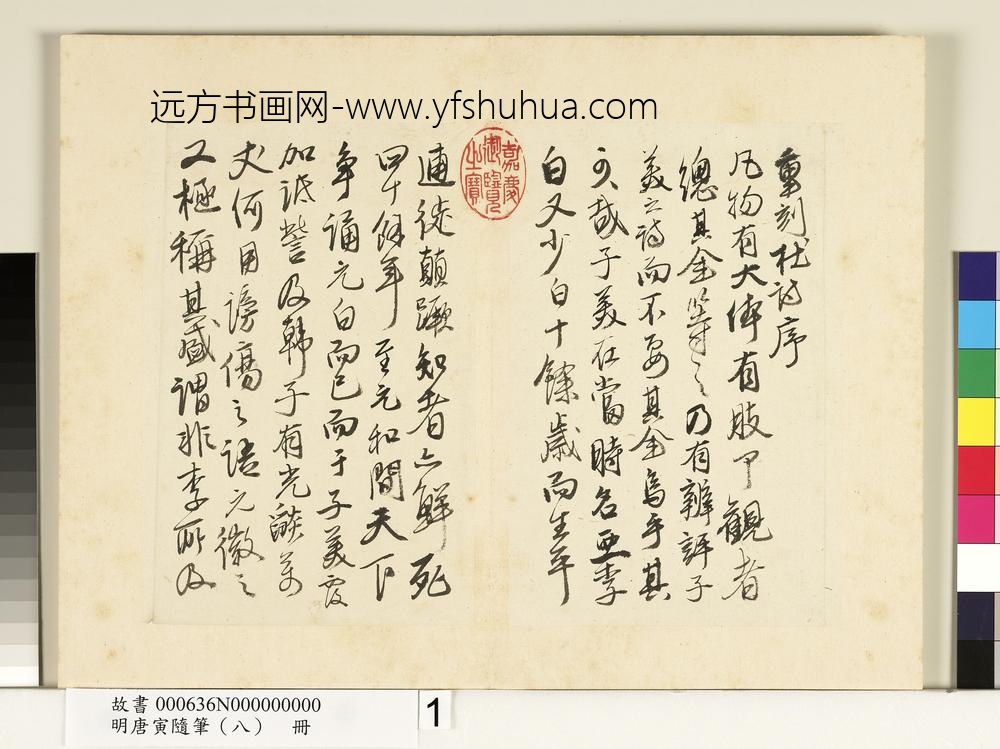 远方书画网-www.yfshuhua.com
重刻杜詩序
凡物有大体有肢甲觀者
總其全等之乃有辨評子
美之詩而不要其全烏乎其
可哉子美在當時名亞李
白又少白十餘歲而生平
嘉慶御覽之寶
逋徙顛躓知者亦鮮死
四十餘年至元和間天下
爭誦元白而已而于子美反
加詆訾及韓子有光燄萬
丈何用謗傷之語元微之
又極稱其盛謂非李所及
故書 000636N000000000
明唐寅隨筆（八） 冊
1